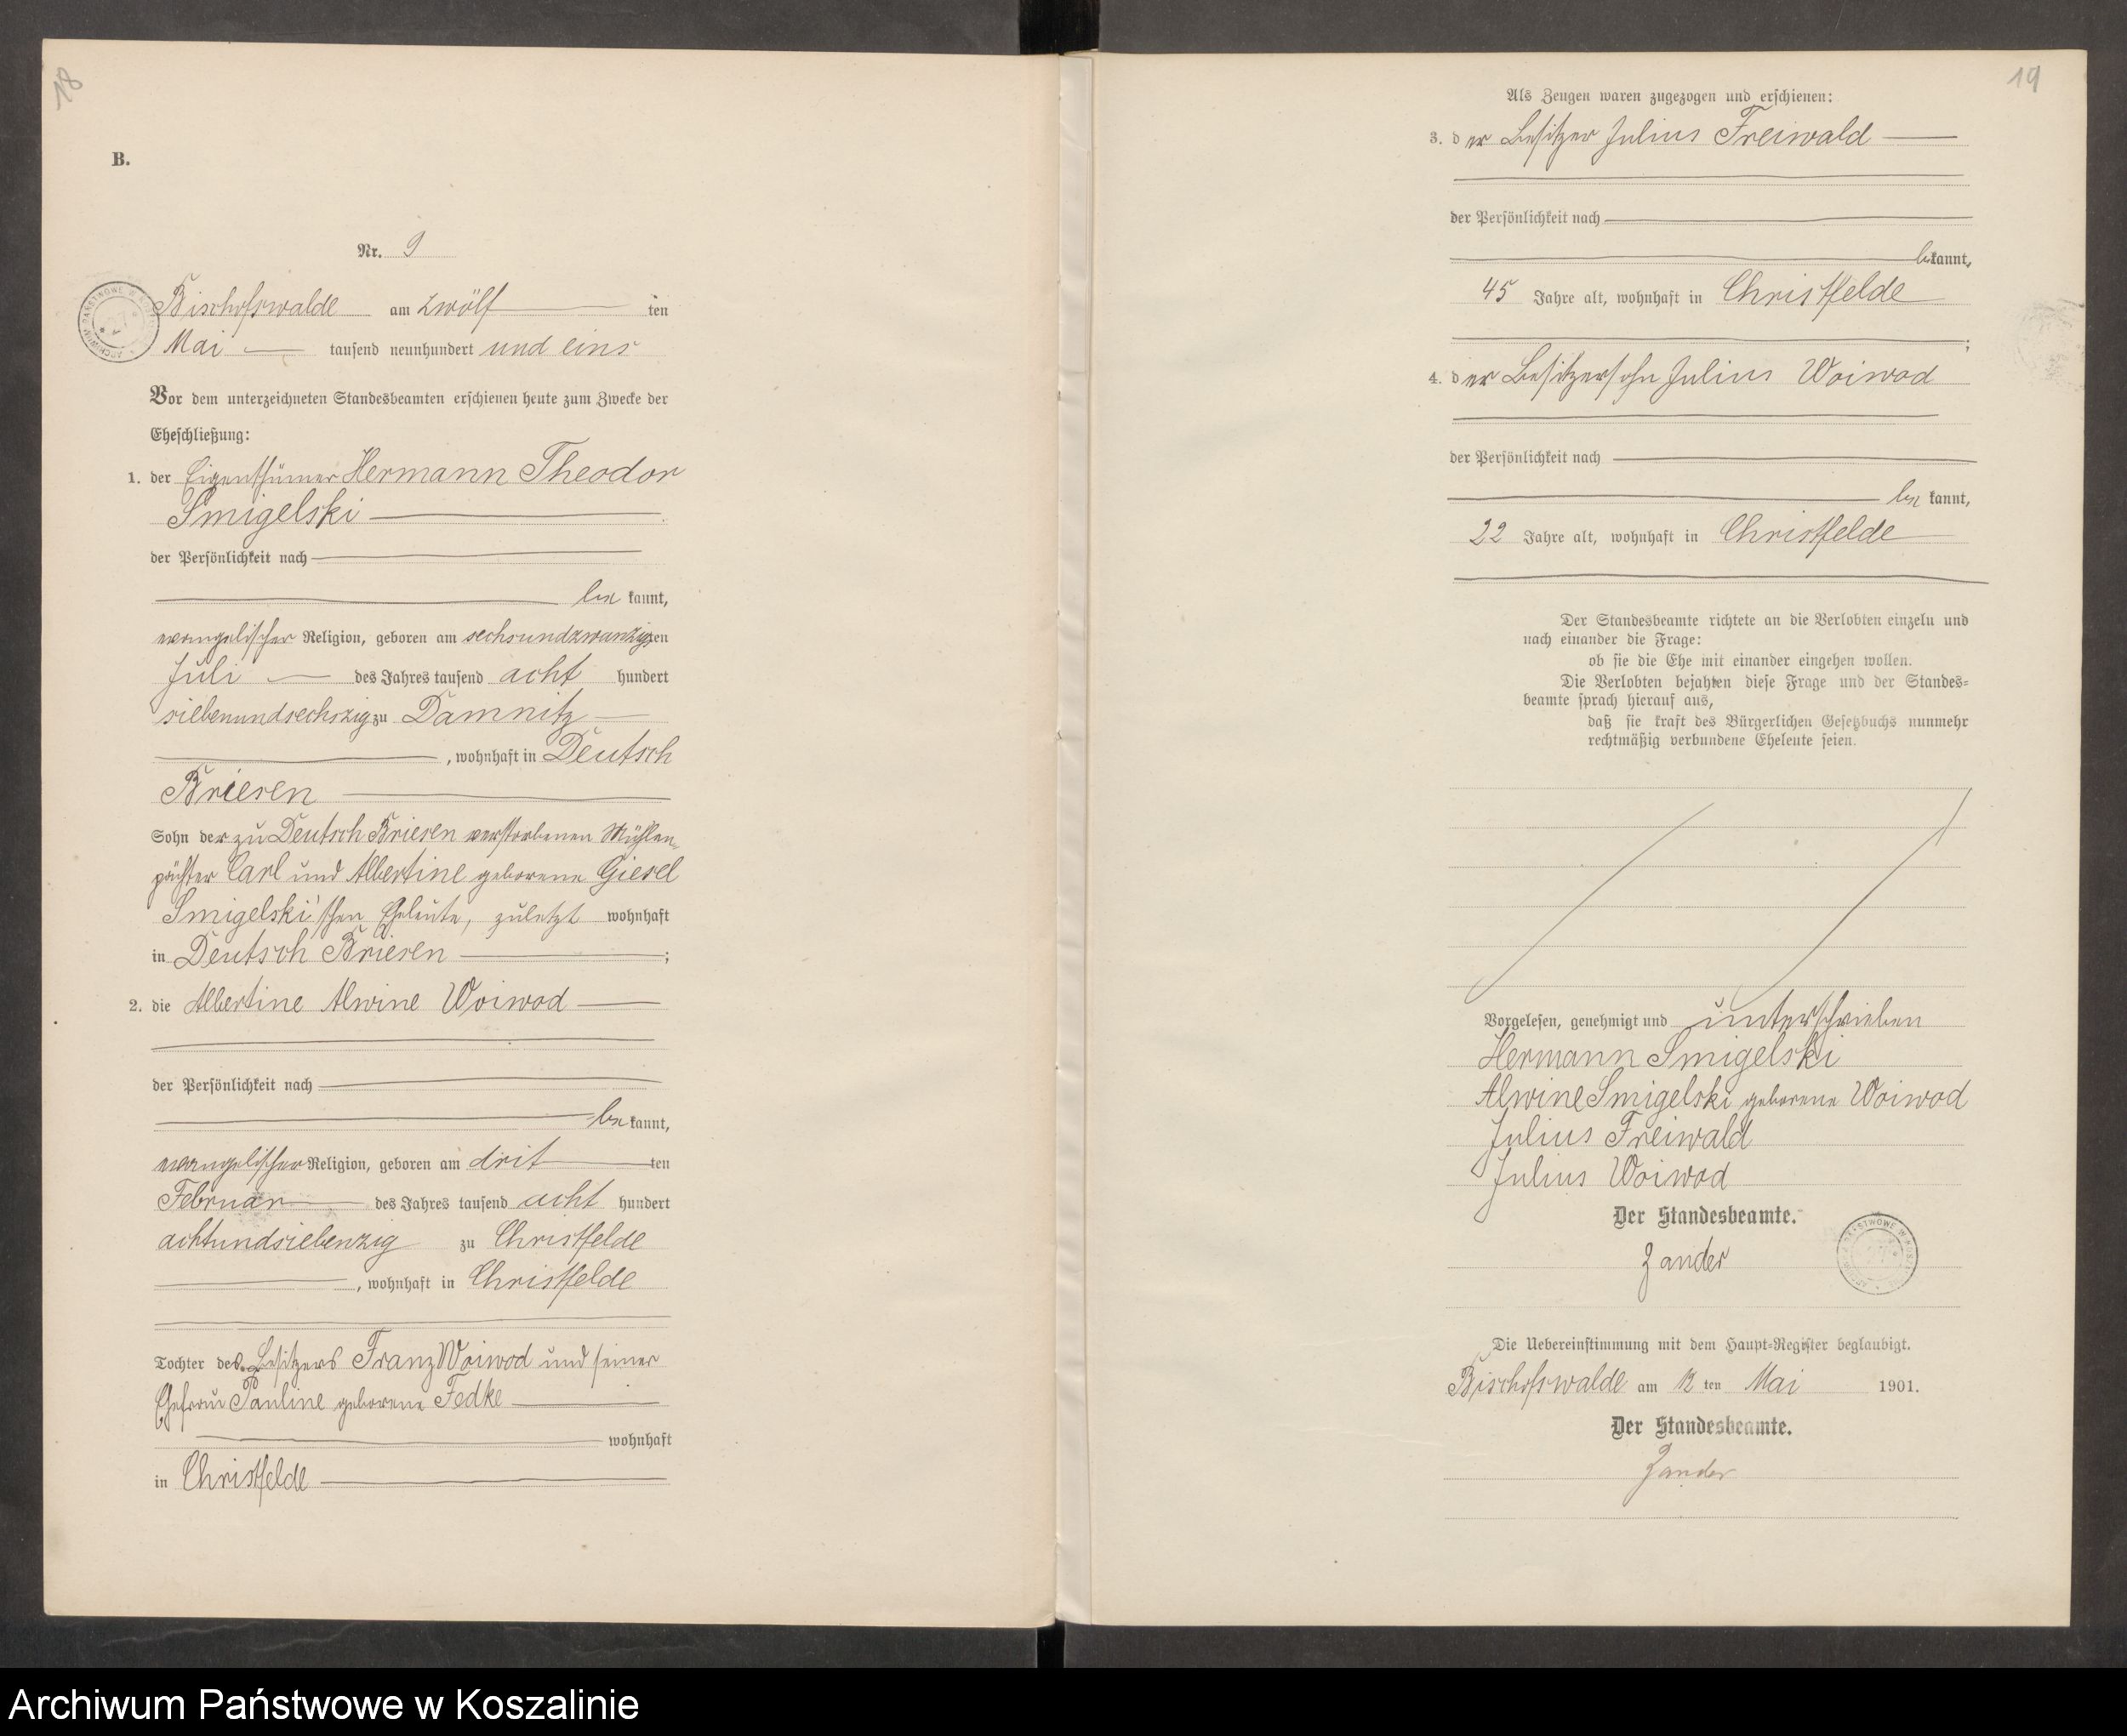 18
B.
Nr. 9
Bischofswalde am zwölf ten
Mai tausend neunhundert und eins
Vor dem unterzeichneten Standesbeamten erschienen heute zum Zwecke der
Eheschließung:
1. der Eigenthümer Hermann Theodor
Smigelski
der Persönlichkeit nach
be kannt,
evangelischer Religion, geboren am sechsundzwanzigsten
Juli des Jahres tausend acht hundert
siebenundsechszig zu Damnitz
, wohnhaft in Deutsch
Briesen
Sohn der zu Deutsch Briesen verstorbenen Mühlen-
pächter Carl und Albertine geborene Giesel
Smigelski'schen Eheleute, zuletzt wohnhaft
in Deutsch Briesen ;
2. die Albertine Alwine Woiwod
der Persönlichkeit nach
be kannt,
evangelischer Religion, geboren am drit ten
Februar des Jahres tausend acht hundert
achtundsiebenzig zu Christfelde
, wohnhaft in Christfelde
Tochter des Besitzers Franz Woiwod und seiner
Ehefrau Pauline geborene Fedke
wohnhaft
in Christfelde
19
Als Zeugen waren zugezogen und erschienen:
3. der Besitzer Julius Freiwald
der Persönlichkeit nach
be kannt,
45 Jahre alt, wohnhaft in Christfelde
;
4. der Besitzersohn Julius Woiwod
der Persönlichkeit nach
be kannt,
22 Jahre alt, wohnhaft in Christfelde
Der Standesbeamte richtete an die Verlobten einzeln und
nach einander die Frage:
ob sie die Ehe mit einander eingehen wollen.
Die Verlobten bejahten diese Frage und der Standes-
beamte sprach hierauf aus,
daß sie kraft des Bürgerlichen Gesetzbuchs nunmehr
rechtmäßig verbundene Eheleute seien.
Vorgelesen, genehmigt und unterschrieben
Hermann Smigelski
Alwine Smigelski geborene Woiwod
Julius Freiwald
Julius Woiwod
Der Standesbeamte.
Zander
Die Uebereinstimmung mit dem Haupt-Register beglaubigt.
Bischofswalde am 12 ten Mai 1901.
Der Standesbeamte.
Zander
Archiwum Państwowe w Koszalinie